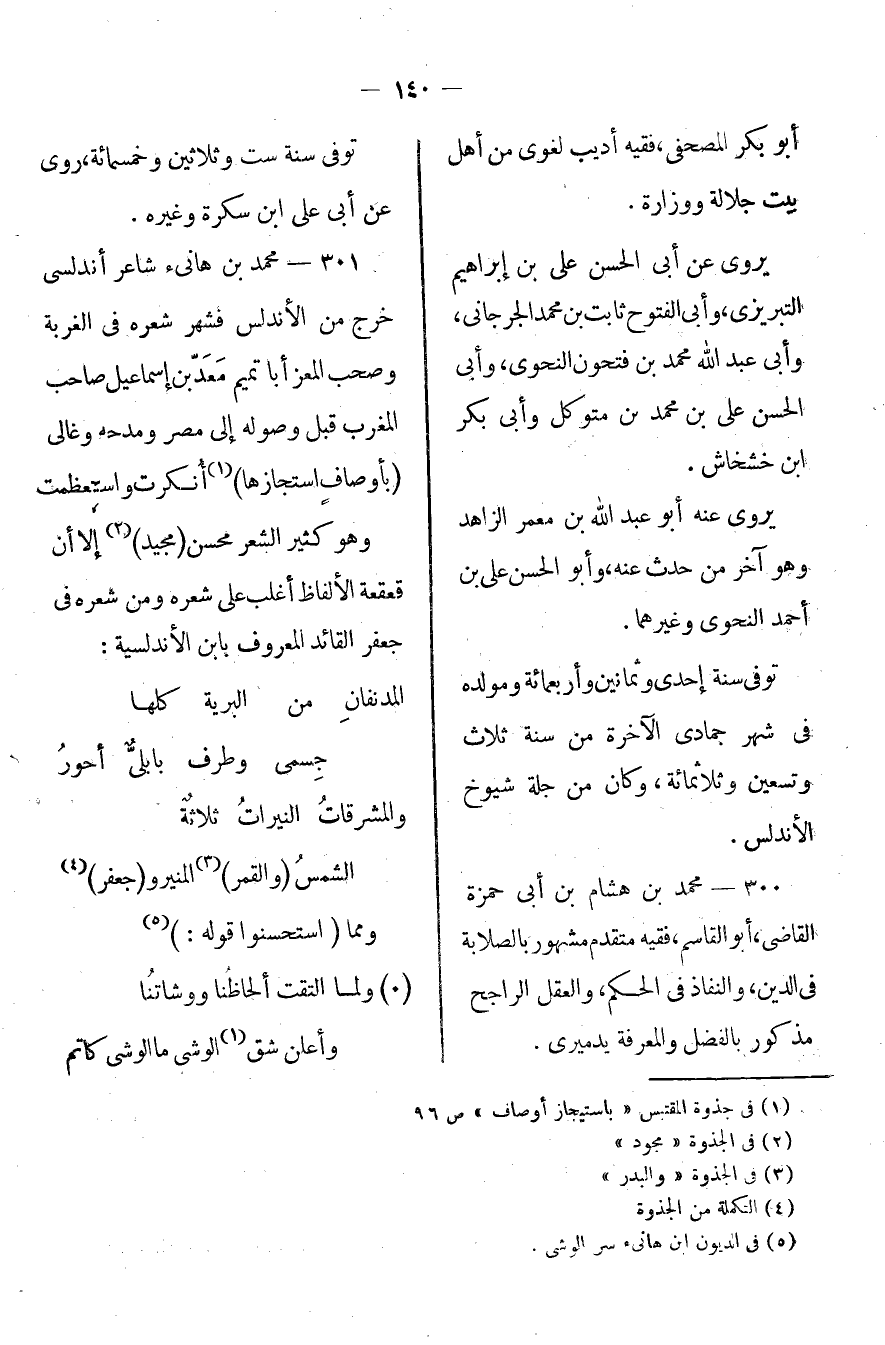 — ١٤٠ —
أبو بكر المصحفى، فقيه أديب لغوى من أهل
بيت جلالة ووزارة .
يروى عن أبى الحسن على بن إبراهيم
التبريزى، وأبى الفتوح ثابت بن محمد الجرجانى،
وأبى عبد الله محمد بن فتحون النحوى، وأبى
الحسن على بن محمد بن متوكل وأبى بكر
ابن خشخاش .
يروى عنه أبو عبد الله بن معمر الزاهد
وهو آخر من حدث عنه، وأبو الحسن على بن
أحمد النحوى وغيرهما .
توفى سنة إحدى وثمانين وأربعمائة ومولده
فى شهر جمادى الآخرة من سنة ثلاث
وتسعين وثلاثمائة ، وكان من جلة شيوخ
الأندلس .
٣٠٠ — محمد بن هشام بن أبى حمزة
القاضى، أبو القاسم، فقيه متقدم مشهور بالصلابة
فى الدين، والنفاذ فى الحكم، والعقل الراجح
مذكور بالفضل والمعرفة يدميرى .
توفى سنة ست وثلاثين وخمسمائة، روى
عن أبى على ابن سكرة وغيره .
٣٠١ — محمد بن هانىء شاعر أندلسى
خرج من الأندلس فشهر شعره فى الغربة
وصحب المعز أبا تميم مَعَدّ بن إسماعيل صاحب
المغرب قبل وصوله إلى مصر ومدحه وغالى
(بأوصافٍ استجازها)(١) أُنكرت واستعظمت
وهو كثير الشعر محسن (مجيد)(٢) إلا أن
قعقعة الألفاظ أغلب على شعره ومن شعره فى
جعفر القائد المعروف بابن الأندلسية :
المدنفانِ من البرية كلها
جِسمى وطرف بابلىٌّ أحورُ
والمشرقاتُ النيراتُ ثلاثةٌ
الشمسُ (والقمر)(٣) المنير و(جعفر)(٤)
ومما ( استحسنوا قوله : )(٥)
(٠) ولما التقت ألحاظُنا ووشاتنُا
وأعلن شق(١) الوشى ما الوشى كاتم
(١) فى جذوة المقتبس « باستيجاز أوصاف » ص ٩٦
(٢) فى الجذوة « مجود »
(٣) فى الجذوة « والبدر »
(٤) التكملة من الجذوة
(٥) فى الديون ابن هانىء سر الوشى .